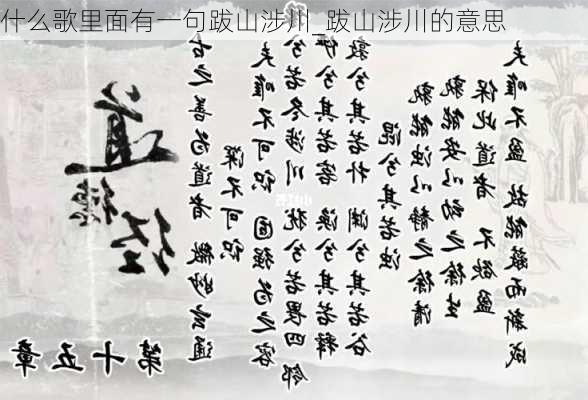 什么歌里面有一句跋山涉川_跋山涉川的意思
道德经
第十五章
古之善为道者 微妙玄通
深不可识
夫唯不可识 固强为之容
兮若冬涉川 犹兮若畏四邻
俨兮其若客 涣兮其若释
敦兮其若朴 渊兮其若谷
混兮其若浊
孰能浊以静之徐清
孰能安以动之徐生
保此道者 不欲盈
夫唯不盈 故能敝而新成